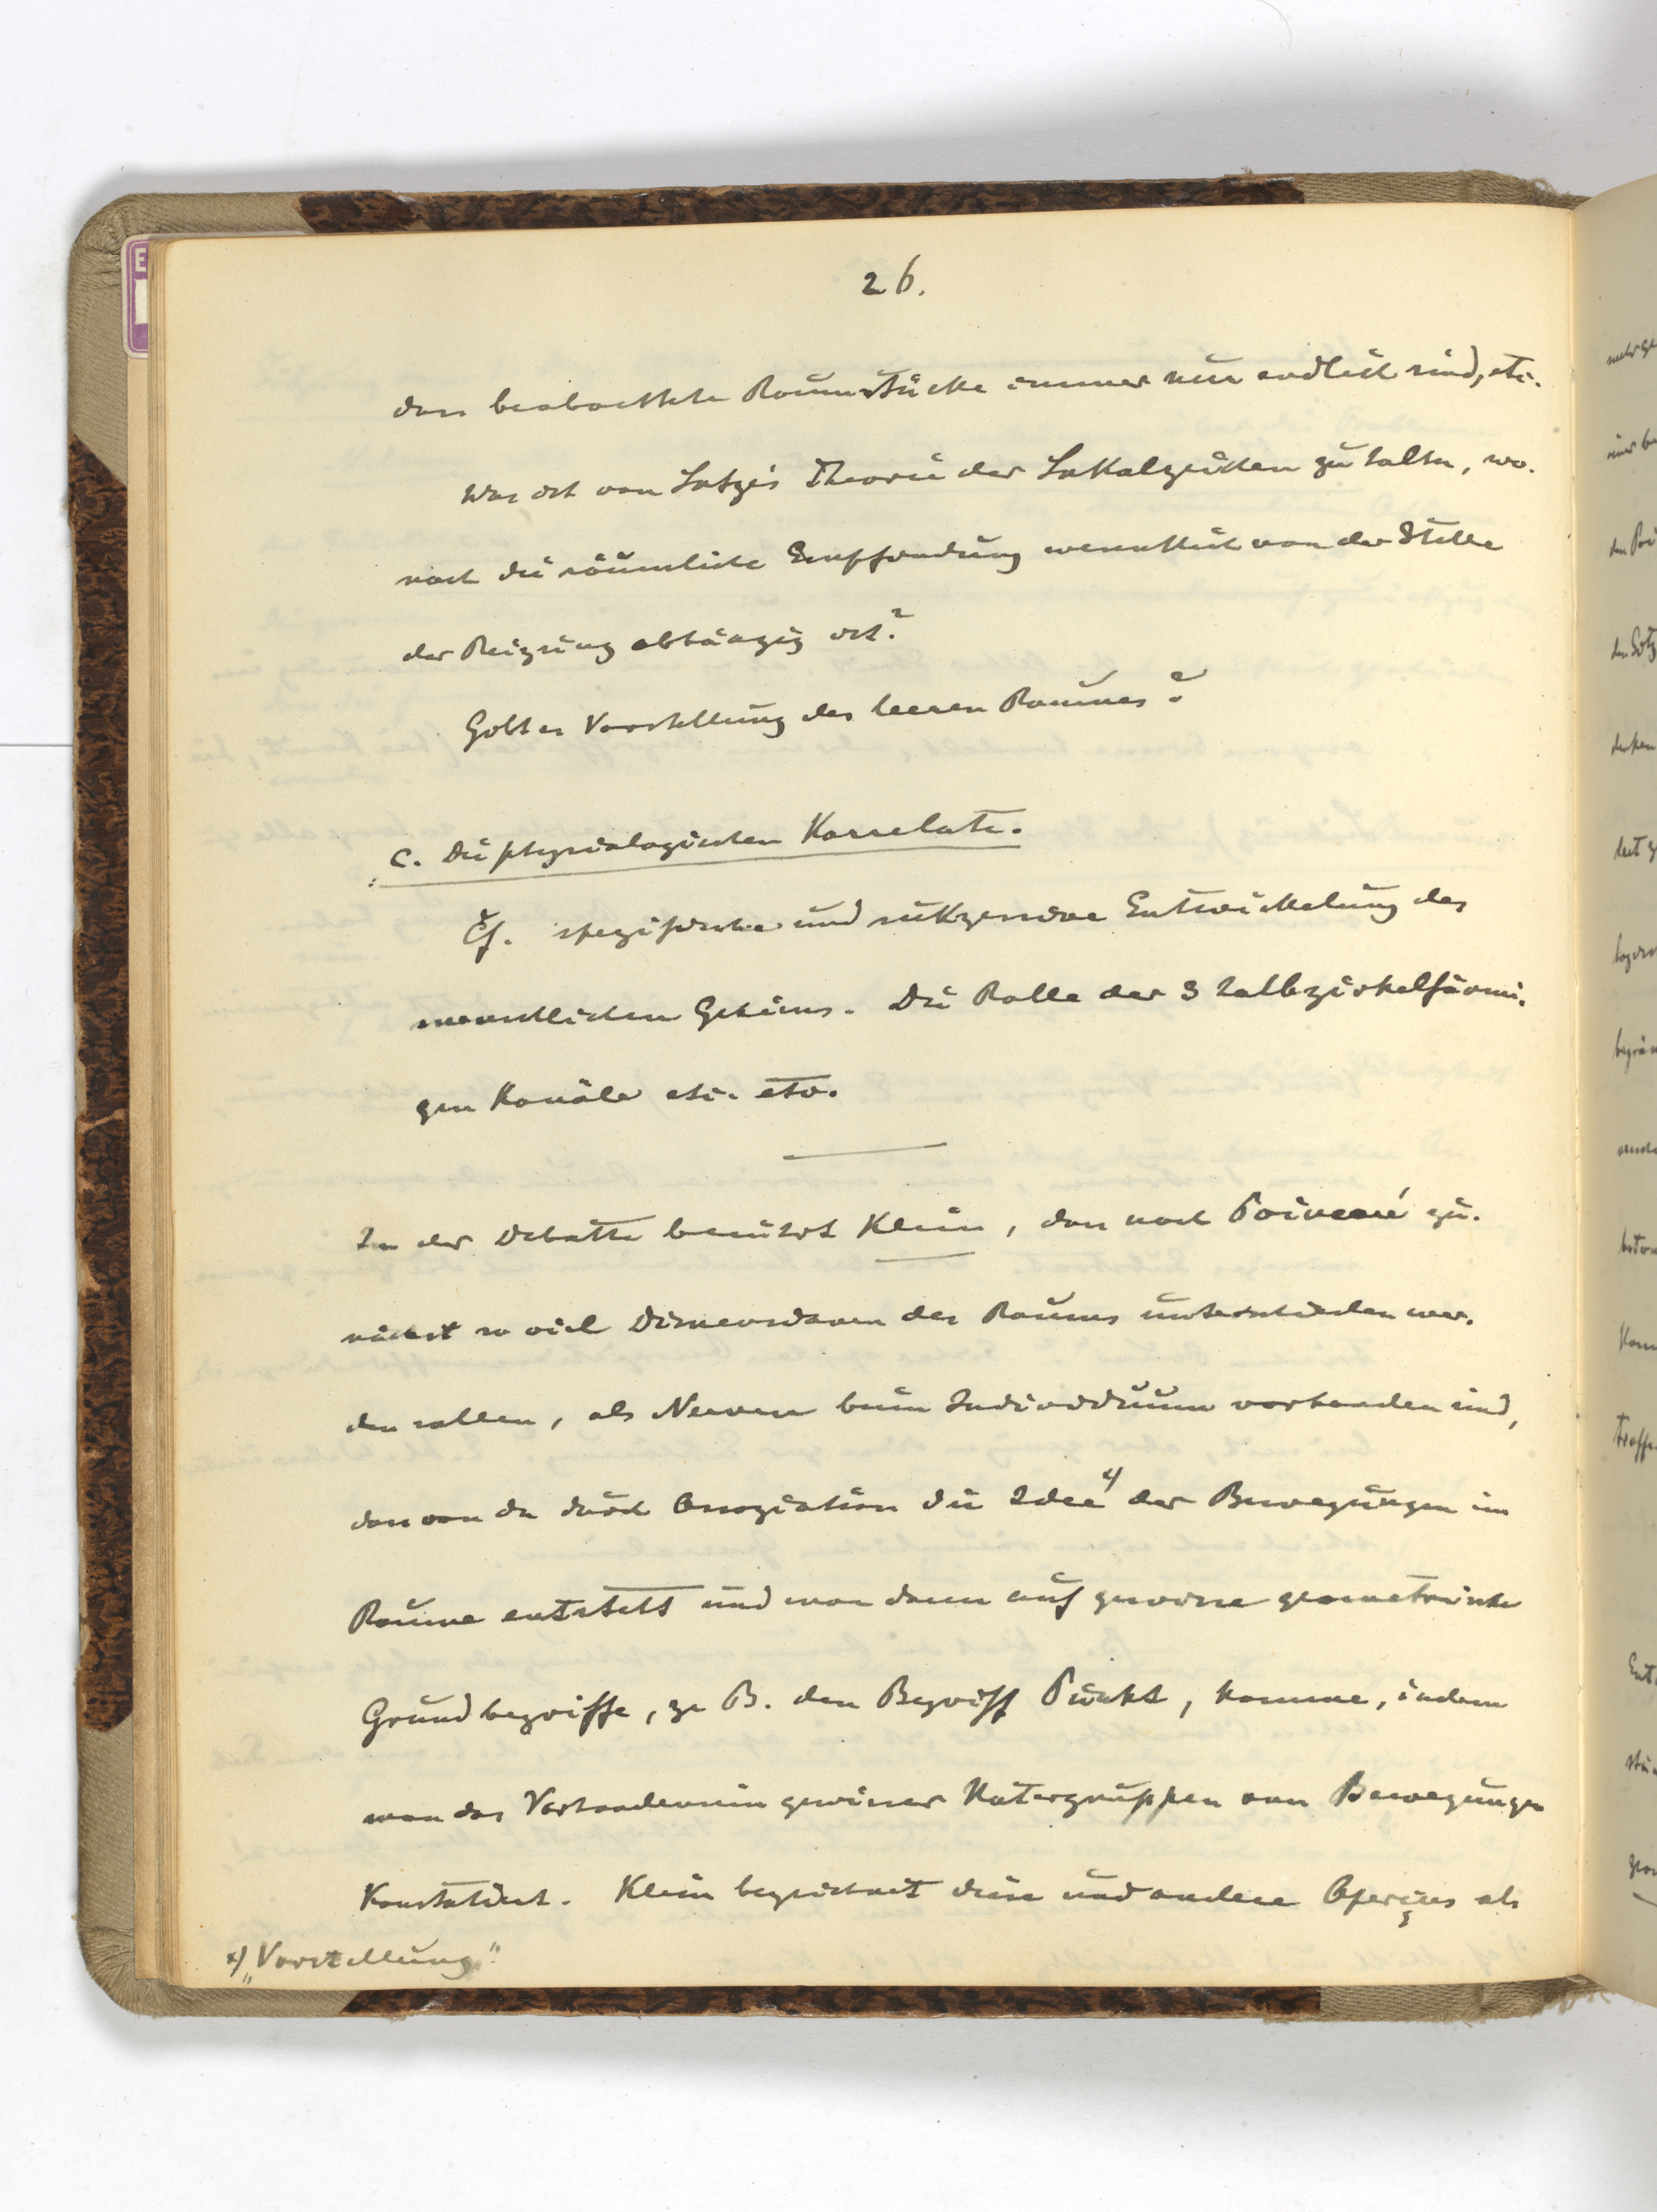 26.
dass beobachtete Raumstücke immer nur endlich sind, etc.
Was ist von Lotze's Theorie der Lokalzeichen zu halten, wo-
nach die räumliche Empfindung wesentlich von der Stelle
der Reizung abhängig ist?
Gibt es Vorstellung des leeren Raumes?
C. Die physiologischen Korrelate.
Cf. spezifische und sukzessive Entwickelung des
menschlichen Gehirns. Die Rolle der 3 halbzirkelförmi-
gen Kanäle etc. etc.
In der Debatte berührt Klein, dass nach Poincaré zu-
nächst so viel Dimensionen des Raums unterschieden wer-
den sollen, als Nerven beim Individuum vorhanden sind,
dass von da durch Assoziation die Idee x) der Bewegungen im
Raume entsteht und man dann auf gewisse geometrische
Grundbegriffe, z. B. den Begriff Punkt, komme, indem
man das Vorhandensein gewisser Untergruppen von Bewegungen
konstatiert. Klein bezeichnet diese und andere Aperçus als
x) „Vorstellung"